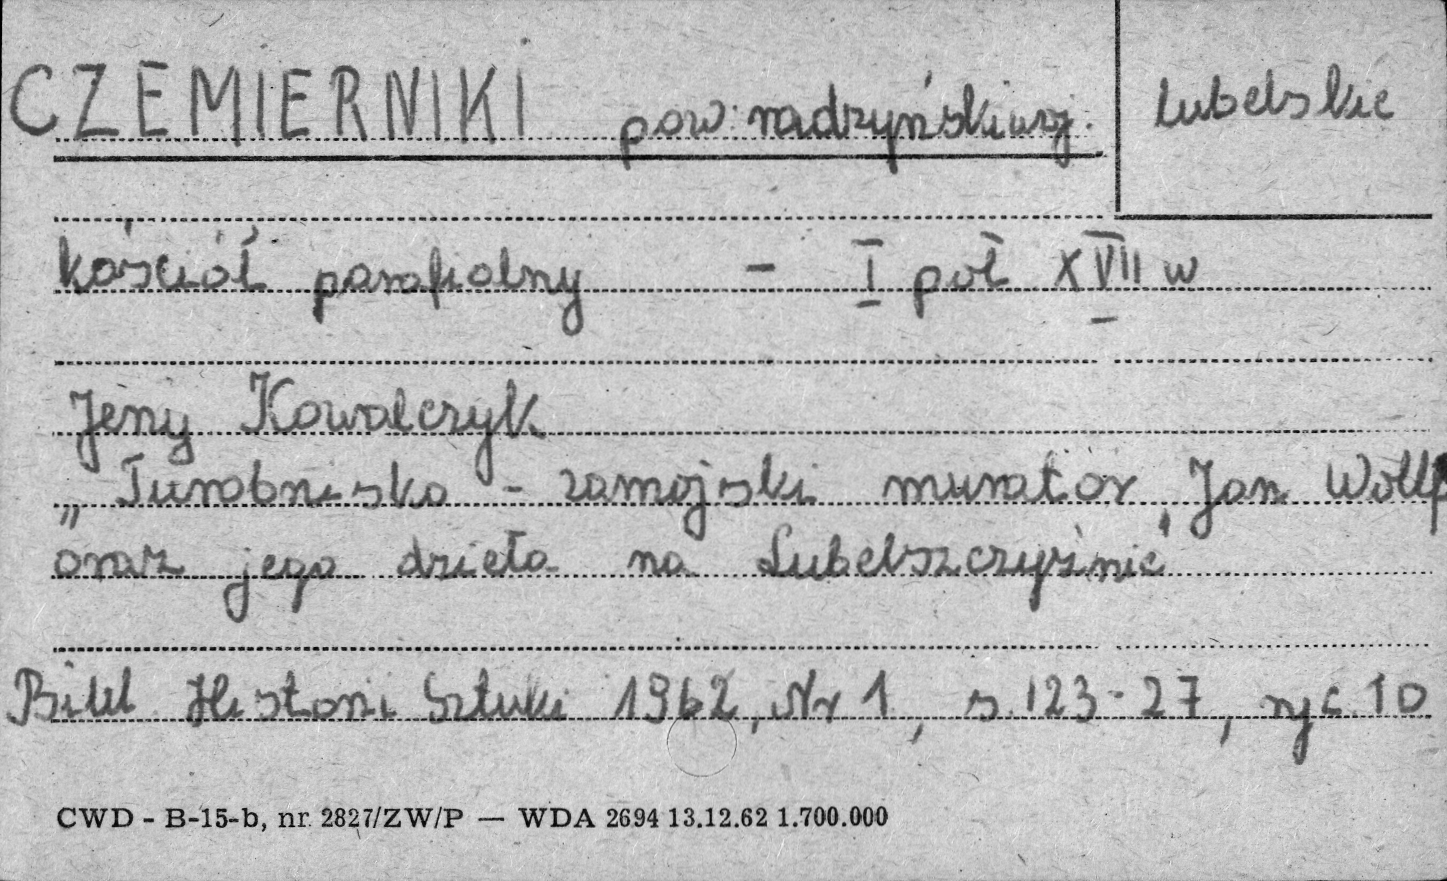 CZEMIERNIKI pow. radzyński woj. lubelskie
kościół parafialny - I poł XVII w
Jerzy Kowalczyk
„Turobińsko - zamojski murator Jan Wolff
oraz jego dzieła na Lubelszczyźnie"
Biul Historii Sztuki 1962, Nr 1, s. 123-27, ryc 10
CWD - B-15-b, nr. 2827/ZW/P — WDA 2694 13.12.62 1.700.000